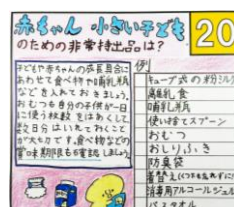 赤ちゃん 小さい子ども
のための非常持出品は?
20
子どもや赤ちゃんの成長具合に
あわせて食べ物や哺乳瓶
などを入れておきましょう。
おむつも自分の子供が一日
に使う枚数をはあくして
数日分はいれておくこと
が大せつです。食べ物などの
賞味期限もを確認しましょう。
例
キューブ式の粉ミルク
離乳食
哺乳瓶
使い捨てスプーン
おむつ
おしりふき
防臭袋
着替え(くつも忘れずに
消毒用アルコールジェル
バスタオル